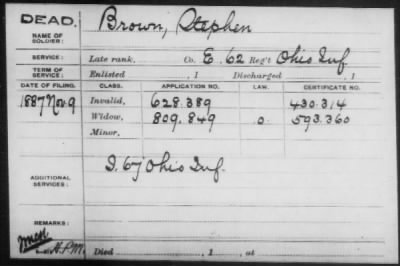 DEAD.
NAME OF SOLDIER: Brown, Stephen
SERVICE: Late rank, Co. E. 62 Reg't Ohio Inf
TERM OF SERVICE: Enlisted , 1 Discharged , 1
DATE OF FILING. CLASS. APPLICATION NO. LAW. CERTIFICATE NO.
1887 Nov. 9 Invalid, 628.389 430.314
Widow, 809.849 .o. 593.360
Minor,
ADDITIONAL SERVICES: D. 67 Ohio Inf.
REMARKS:
H.P.M. Died , 1 , at